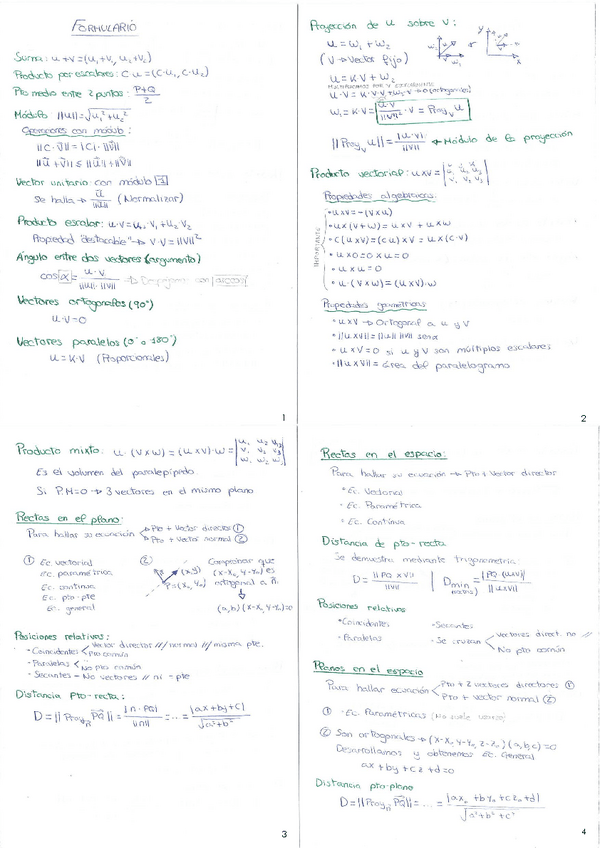 FORMULARIO
Suma: u+v=(u₁+v₁, u₂+v₂)
Producto por escalares: C·u=(C·u₁, C·u₂)
Pto medio entre 2 puntos: P+Q/2
Módulo ||u||=√u₁²+u₂²
Operaciones con módulo:
||C·ū||=|C|·||ū||
||ū+v̄||≤||ū||+||v̄||
Vector unitario con módulo 1
Se halla → ū/||ū|| (Normalizar)
Producto escalar: u·v=u₁·v₁+u₂·v₂
Propiedad "destacable" → v·v=||v||²
Ángulo entre dos vectores (argumento)
cos α = u·v/||u||·||v||
Vectores ortogonales (90°)
u·v=0
Vectores paralelos (0° o 180°)
u=k·v (Proporcionales)
1
Proyección de u sobre v:
u=w₁+w₂
(v→vector fijo)
u=k·v+w₂
u·v=k·v·v+w₂·v→0 (ortogonales)
w₁=k·v= u·v/||v||² ·v = Proyᵥu
||Proyᵥu||= |u·v|/||v|| → Módulo de la proyección
Producto vectorial: u×v=
Propiedades algebraicas:
IMPORTANTE
• u×v=-(v×u)
• u×(v+w)=u×v+u×w
• C(u×v)=(cu)×v=u×(c·v)
• u×0=0×u=0
• u×u=0
• u·(v×w)=(u×v)·w
Propiedades geométricas
• u×v → Ortogonal a u y v
• ||u×v||=||u||·||v|| senα
• u×v=0 si u y v son múltiplos escalares
• ||u×v||= área del paralelogramo
2
Producto mixto: u·(v×w)=(u×v)·w= |u₁ u₂ u₃ v₁ v₂ v₃ w₁ w₂ w₃|
Es el volumen del paralepípido.
Si P.M=0 → 3 vectores en el mismo plano
Rectas en el plano:
Para hallar su ecuación → Pto + vector director ①
→ Pto + vector normal ②
① Ec. vectorial
Ec. paramétrica
Ec. continua
Ec. pto-pte
Ec. general
② (x,y)
P=(x₀,y₀)
Comprobar que
(x-x₀, y-y₀) es
ortogonal a n̄.
(a,b)(x-x₀, y-y₀)=0
Posiciones relativas:
• Coincidentes < vector director // normal // misma pte.
Pto común
• Paralelas < "
No pto común
• Secantes – No vectores // ni = pte
Distancia pto-recta:
D=||Proyₙ PQ||= |n·PQ|/||n|| =...= |ax+by+c|/√a²+b²
3
Rectas en el espacio:
Para hallar su ecuación → Pto + vector director
• Ec. Vectorial
• Ec. Paramétrica
• Ec. Continua
Distancia de pto-recta
Se demuestra mediante trigonometría:
D= ||PQ×v||/||v|| | Dmin = |PQ·(u×v)|/||u×v||
Posiciones relativas
• Coincidentes • Secantes
• Paralelas • Se cruzan < vectores direct. no //
No pto común
Planos en el espacio
Para hallar ecuación < Pto + 2 vectores directores ①
Pto + vector normal ②
① - Ec. Paramétricas
② Son ortogonales → (x-x₀, y-y₀, z-z₀)(a,b,c)=0
Desarrollamos y obtenemos Ec. General
ax+by+cz+d=0
Distancia pto-plano
D=||Proyₙ PQ||=...= |ax₀+by₀+cz₀+d|/√a²+b²+c²
4